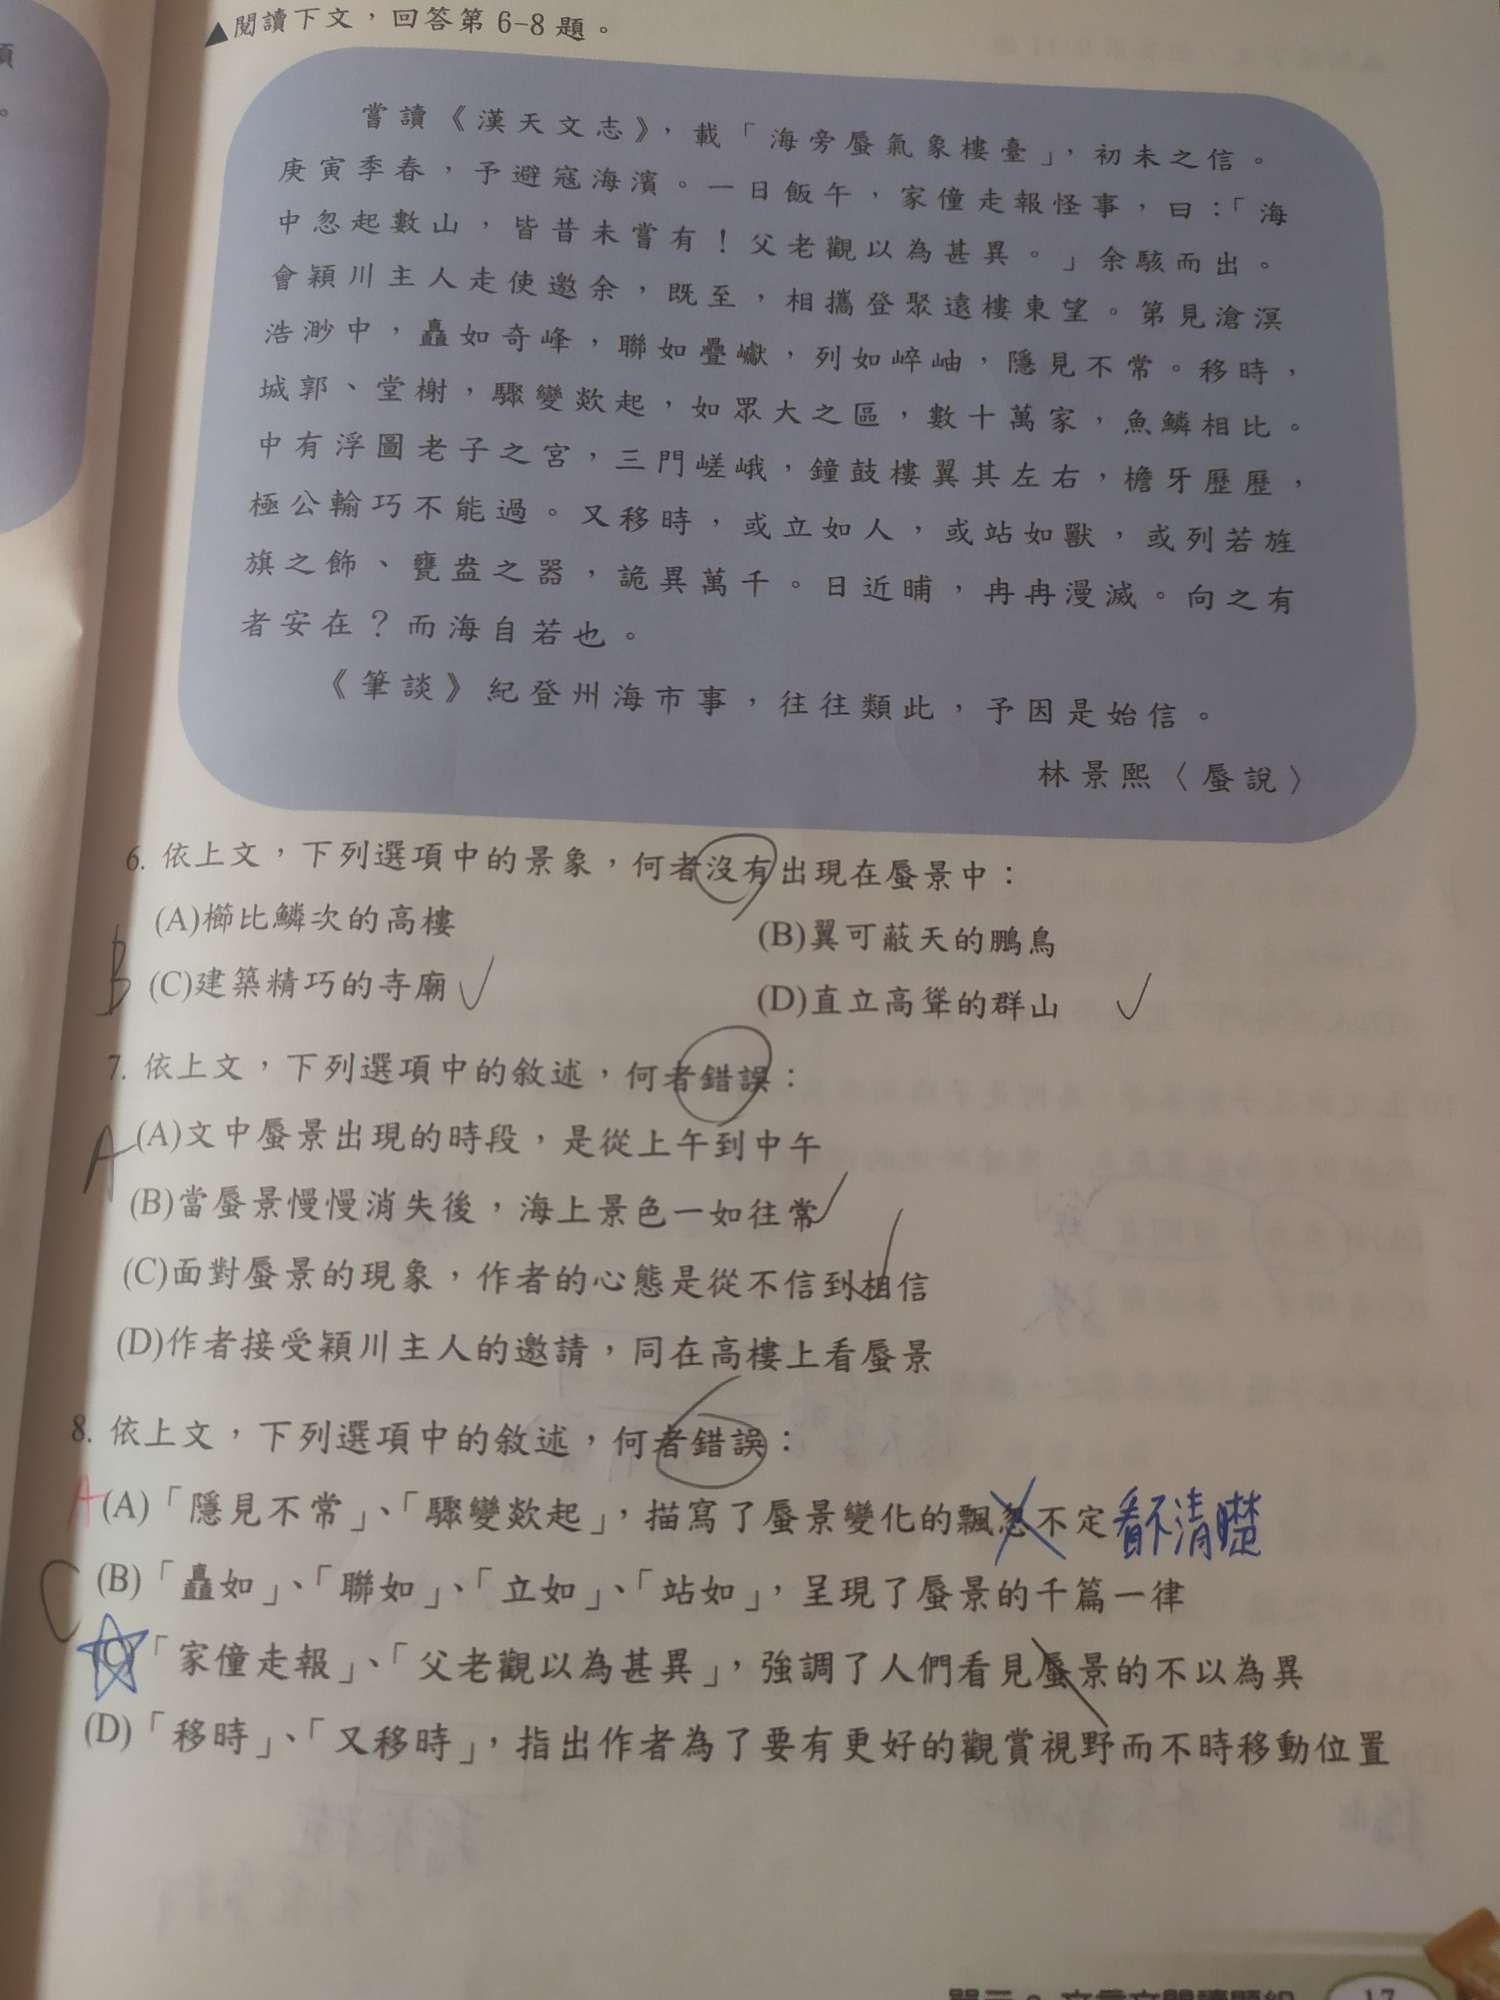 ▲閱讀下文，回答第 6-8 題。
嘗讀《漢天文志》，載「海旁蜃氣象樓臺」，初未之信。
庚寅季春，予避寇海濱。一日飯午，家僮走報怪事，曰：「海
中忽起數山，皆昔未嘗有！父老觀以為甚異。」余駭而出。
會穎川主人走使邀余，既至，相攜登聚遠樓東望。第見滄溟
浩渺中，矗如奇峰，聯如疊巘，列如崒岫，隱見不常。移時，
城郭、堂榭，驟變欻起，如眾大之區，數十萬家，魚鱗相比。
中有浮圖老子之宮，三門嵯峨，鐘鼓樓翼其左右，檐牙歷歷，
極公輸巧不能過。又移時，或立如人，或站如獸，或列若旌
旗之飾、甕盎之器，詭異萬千。日近晡，冉冉漫滅。向之有
者安在？而海自若也。
《筆談》紀登州海市事，往往類此，予因是始信。
林景熙〈蜃說〉
6. 依上文，下列選項中的景象，何者沒有出現在蜃景中：
(A)櫛比鱗次的高樓
(B)翼可蔽天的鵬鳥
B
(C)建築精巧的寺廟
(D)直立高聳的群山
7. 依上文，下列選項中的敘述，何者錯誤：
A
(A)文中蜃景出現的時段，是從上午到中午
(B)當蜃景慢慢消失後，海上景色一如往常
(C)面對蜃景的現象，作者的心態是從不信到相信
(D)作者接受穎川主人的邀請，同在高樓上看蜃景
8. 依上文，下列選項中的敘述，何者錯誤：
A
(A)「隱見不常」、「驟變欻起」，描寫了蜃景變化的飄忽不定 看不清楚
C
(B)「矗如」、「聯如」、「立如」、「站如」，呈現了蜃景的千篇一律
(C)「家僮走報」、「父老觀以為甚異」，強調了人們看見蜃景的不以為異
(D)「移時」、「又移時」，指出作者為了要有更好的觀賞視野而不時移動位置
17